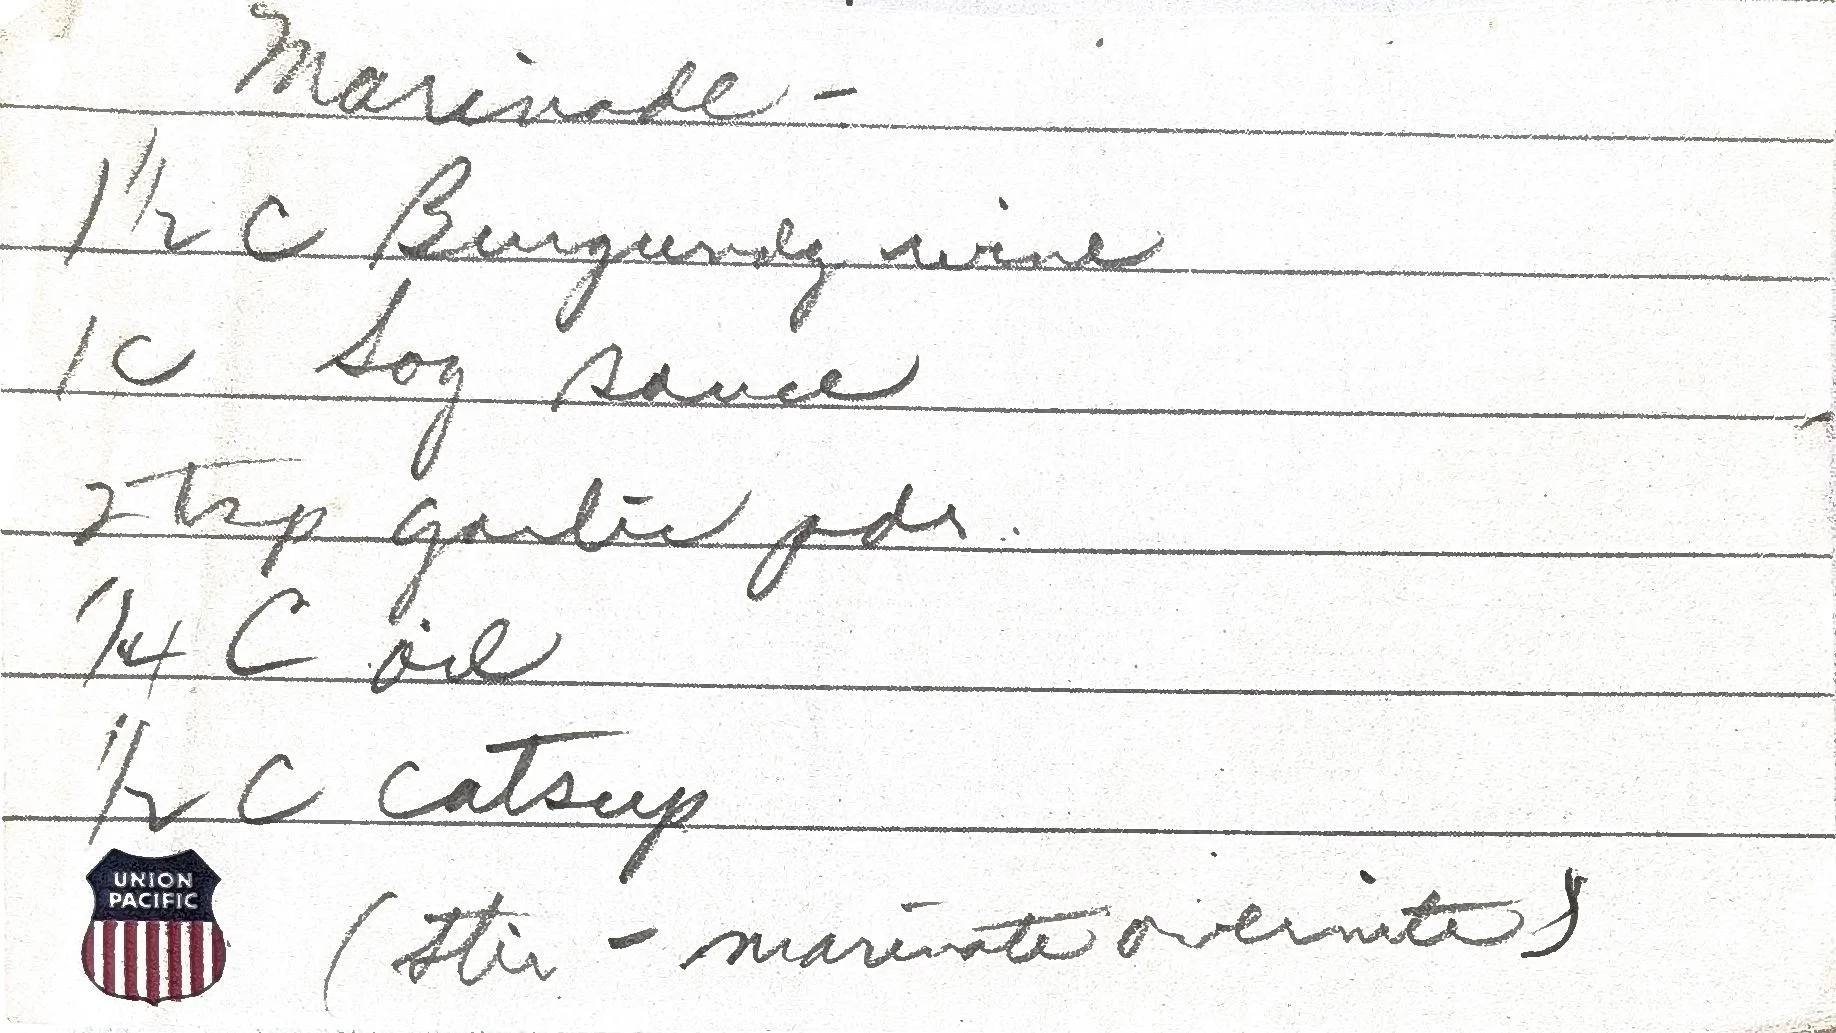 Marinade -
1 1/2 C Burgundy wine
1 C Soy sauce
2 tsp garlic pdr.
1/4 C oil
1/2 C catsup
UNION
PACIFIC
(Stir - marinate overnite)